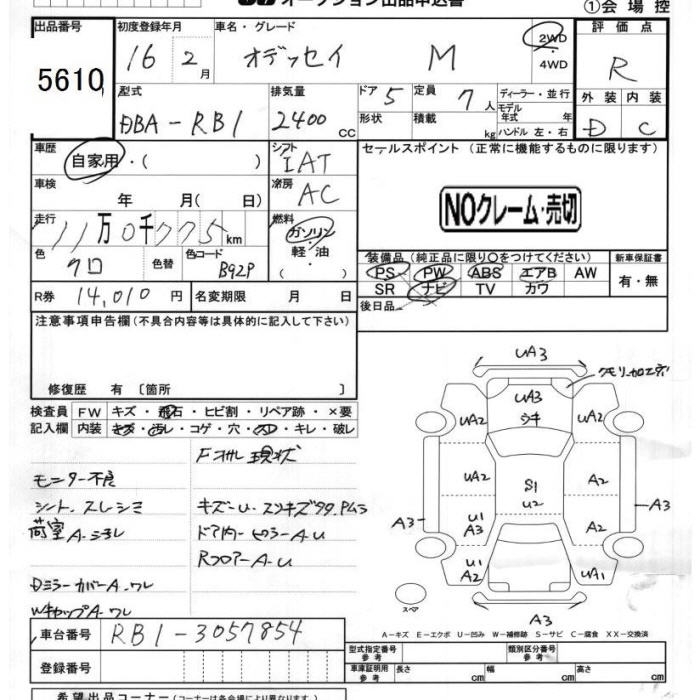 オークション出品申込書
①会場控
出品番号 5610
初度登録年月 16 2月
車名・グレード オデッセイ M
2WD・4WD
評価点 R
外装 D 内装 C
型式 DBA-RB1
排気量 2400 cc
ドア 5
形状
定員 7人
積載 kg
ディーラー・並行
モデル年式 年
ハンドル 左・右
車歴 自家用・( )
シフト IAT
セールスポイント(正常に機能するものに限ります)
NOクレーム・売切
車検 年 月( 日)
冷房 AC
走行 11万0千775km
燃料 ガソリン・軽・油・( )
色 クロ 色替 色コード B92P
装備品(純正品に限り○をつけてください)
PS PW ABS エアB AW
SR ナビ TV カワ
新車保証書 有・無
R券 14,010円 名変期限 月 日
後日品
注意事項申告欄(不具合内容等は具体的に記入して下さい)
修復歴 有〔箇所 〕
検査員記入欄
FW キズ・飛石・ヒビ割・リペア跡・×要
内装 キズ・汚レ・コゲ・穴・スレ・キレ・破レ
現状
モニター不良
シート スレ・シミ
荷室 A・ヨゴレ
キズ・U
ドア内
ピラーA・U
RフロアーA・U
DミラーカバーA・ワレ
WキャップA・ワレ
UA3
UA3
UA2
UA2
UA2
A2
S1
U2
U1
A3
A2
A3
A3
U1
A2
UA1
スペア
A3
A-キズ E-エクボ U-凹み W-補修跡 S-サビ C-腐食 XX-交換済
車台番号 RB1-3057854
登録番号
型式指定番号 参考
類別区分番号 参考
車庫証明用 参考 長さ cm 幅 cm 高さ cm
希望出品コーナー(コーナーは各会場により異なります)